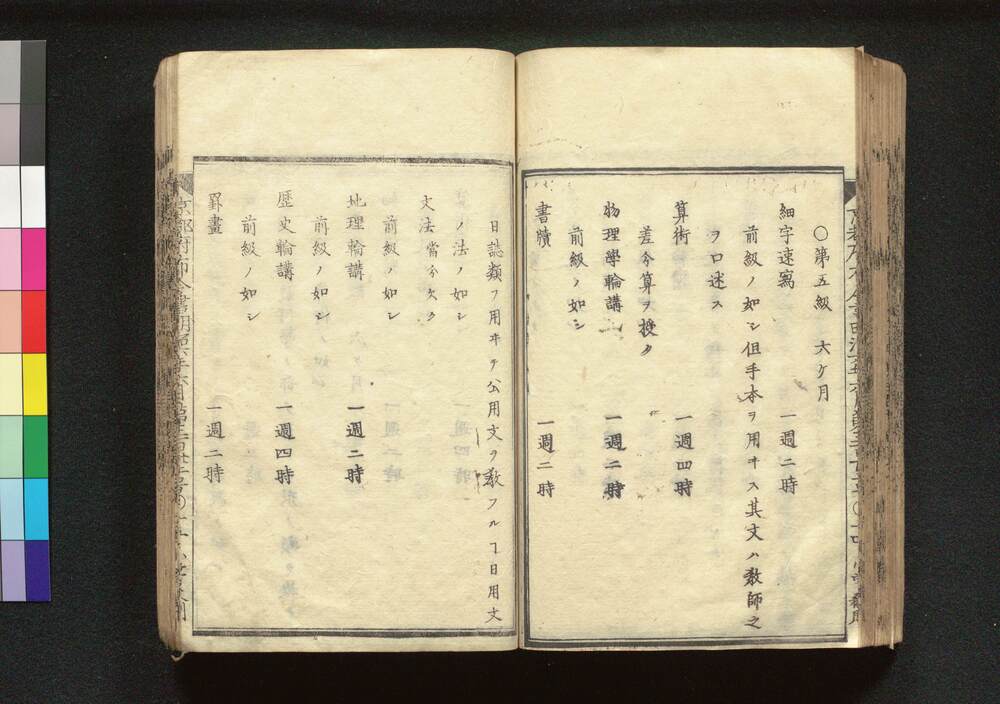 〇第五級 六ケ月
細字速寫 一週二時
前級ノ如シ但手本ヲ用ヰス其文ハ教師之
ヲ口述ス
算術 一週四時
差分算ヲ授ク
物理學輪講 一週二時
前級ノ如シ
書牘 一週二時
日誌類ヲ用ヰテ公用文ヲ教フルヿ日用文
ノ法ノ如シ
文法當分欠ク
前級ノ如シ
地理輪講 一週二時
前級ノ如シ
歴史輪講 一週四時
前級ノ如シ
罫畫 一週二時